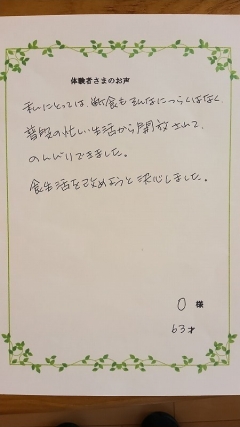 体験者さまのお声
私にとっては、断食もそんなにつらくはなく、
普段の忙しい生活から開放されて、
のんびりできました。
食生活を改めようと決心しました。
O 様
63才